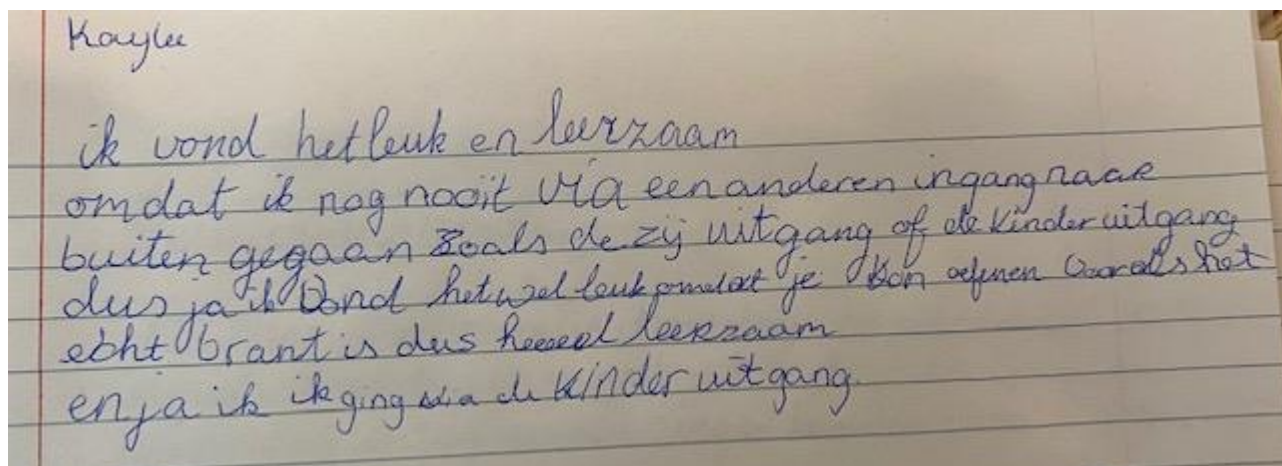 Kaylee
ik vond het leuk en leerzaam
omdat ik nog nooit via een anderen ingang naar
buiten gegaan zoals de zij uitgang of de kinder uitgang
dus ja ik vond het wel leuk omdat je kon oefenen voor als het
echt brant is dus heeeel leerzaam
en ja ik ik ging via de kinder uitgang.